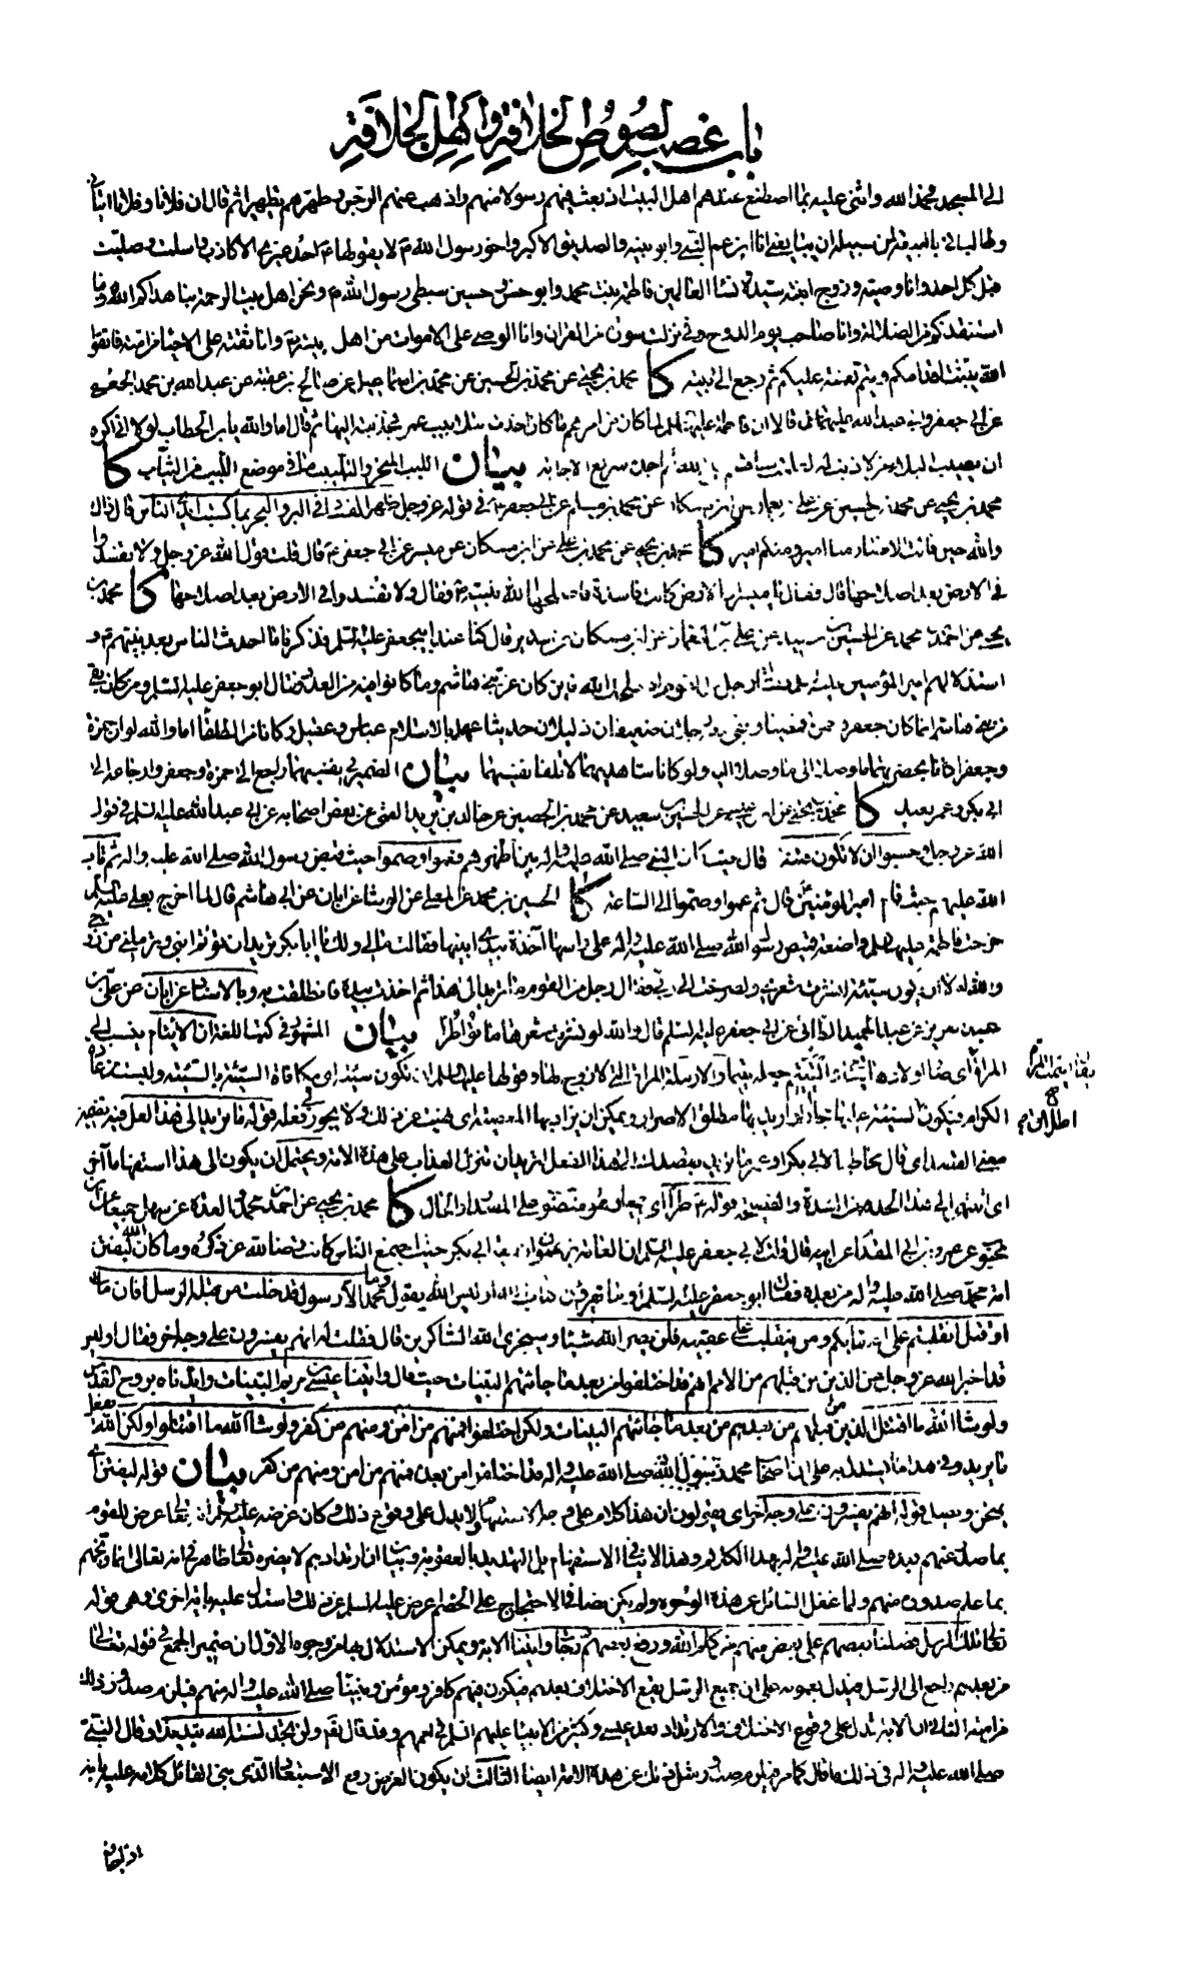 باب غصب لصوص الخلافة واهل الجلافة
الى المسجد فحمد الله واثنى عليه بما اصطنع عندهم اهل البيت اذ بعث فيهم رسولا منهم واذهب عنهم الرجس وطهرهم تطهيرا ثم قال ان فلانا وفلانا اتياني
وطالباني بالبيعة لمن سبيله ان يبايعني انا ابن عم النبي وابو بنيه والصديق الاكبر واخو رسول الله لا يقولها احد غيري الا كاذب واسلمت وصليت
قبل كل احد وانا وصيه وزوج ابنته سيدة نساء العالمين فاطمة بنت محمد وابو حسن وحسين سبطي رسول الله ونحن اهل بيت الرحمة بنا هداكم الله وبنا
استنقذكم من الضلالة وانا صاحب يوم الدوح وفي نزلت سورة من القران وانا الوصي على الاموات من اهل بيته وانا ثقته على الاحياء من امته فاتقوا
الله يثبت اقدامكم ويتم نعمته عليكم ثم رجع الى بيته كا محمد بن يحيى عن محمد بن الحسين عن محمد بن اسماعيل عن صالح بن عقبة عن عبد الله بن محمد الجعفي
عن ابي جعفر وابي عبد الله عليهما قالا ان فاطمة عليها لما ان كان من امرهم ما كان اخذت بتلابيب عمر فجذبته اليها ثم قال اما والله يابن الخطاب لولا اني اكره
ان يصيب البلاء من لا ذنب له سريع الاجابة بيان اللبب المنحر والتلبيب ما في موضع اللبب من الثياب كا
محمد بن يحيى عن محمد بن الحسين عن علي عن محمد بن مسلم عن ابي جعفر في قوله عز وجل ظهر الفساد في البر والبحر بما كسبت ايدي الناس قال ذاك
والله حين قالت الانصار منا امير ومنكم امير كا محمد بن يحيى عن محمد بن علي عن ابن مسكان عن ميسر عن ابي جعفر قال قلت قول الله عز وجل ولا تفسدوا
في الارض بعد اصلاحها قال فقال يا ميسر ان الارض كانت فاسدة فاصلحها الله بنبيه فقال ولا تفسدوا في الارض بعد اصلاحها كا محمد بن
يحيى عن احمد بن محمد عن الحسين بن سعيد عن علي بن النعمان عن ابن مسكان عن سدير قال كنا عند ابي جعفر عليه السلم فذكرنا ما احدث الناس بعد نبيهم و
استذلالهم امير المؤمنين عليه فقال رجل من القوم اصلحك الله فاين كان عز بني هاشم وما كانوا فيه من العدد فقال ابو جعفر عليه السلم ومن كان بقي
من بني هاشم انما كان جعفر وحمزة فمضيا وبقي رجلان ضعيفان ذليلان حديثا عهد بالاسلام عباس وعقيل وكانا من الطلقا اما والله لو ان حمزة
وجعفرا كانا بحضرتهما ما وصلا الى ما وصلا اليه ولو كانا شاهديهما لاتلفا نفسيهما بيان الضمير في نفسيهما راجع الى حمزة وجعفر وارجاعه الى
ابي بكر وعمر بعيد كا محمد بن يحيى عن الحسين بن سعيد عن محمد بن الحصين عن خالد بن يزيد القمي عن بعض اصحابه عن ابي عبد الله عليه السلم في قوله
الله عز وجل وحسبوا ان لا تكون فتنة قال حيث كان النبي صلى الله عليه واله بين اظهرهم فعموا وصموا حيث قبض رسول الله صلى الله عليه واله ثم تاب
الله عليهم حيث قام امير المؤمنين قال ثم عموا وصموا الى الساعة كا الحسين بن محمد عن المعلى عن الوشا عن ابان عن ابي هاشم قال لما اخرج بعلي عليه السلم
خرجت فاطمة عليها واضعة قميص رسول الله صلى الله عليه واله على راسها اخذة بيدي ابنيها فقالت مالي ولك يا ابا بكر تريد ان توتم ابني وترملني من زوجي
والله لولا ان تكون سيئة لنشرت شعري ولصرخت الى ربي فقال رجل من القوم ما تريد الى هذا ثم اخذت بيده فانطلقت به وبالاسناد عن ابان عن علي بن
عبد العزيز عن عبد الحميد الطائي عن ابي جعفر عليه السلم قال والله لو نشرت شعرها ماتوا طرا بيان المشهور في كتب اللغة ان الايتام ينسب الى
المراة اي صار اولادها يتامى والارملة المراة التي لا زوج لها وقولها عليها السلم ان تكون سيئة اي مكافاة السيئة بالسيئة وليست من داب
الكرام فيكون اطلاق السيئة عليها مجازا او اريد بها مطلق الاضرار ويمكن ان يراد بها المعصية اي نهيت عن ذلك ولا يجوز لي فعله قوله ما تريد الى هذا لعل فيه تضمين
معنى القصد اي قال مخاطبا لابي بكر او عمر ما تريد بقصدك الى هذا الفعل اتريد ان تنزل العذاب على هذه الامة ويحتمل ان يكون الى هذا استفهاما اخر
اي انتهى الى هذا الحد من الشدة والفضيحة قوله طرا اي جميعا وهو منصوب على المصدر او الحال كا محمد بن يحيى عن احمد بن محمد والعدة عن سهل جميعا عن ابن
محبوب عن عمرو بن ابي المقدام عن ابيه قال قلت لابي جعفر عليه السلم ان العامة يزعمون ان بيعة ابي بكر حيث اجتمع الناس كانت رضا لله عز ذكره وما كان الله ليفتن
امة محمد صلى الله عليه واله من بعده فقال ابو جعفر عليه السلم او ما يقرؤن كتاب الله اوليس الله يقول وما محمد الا رسول قد خلت من قبله الرسل افان مات
او قتل انقلبتم على اعقابكم ومن ينقلب على عقبيه فلن يضر الله شيئا وسيجزي الله الشاكرين قال فقلت له انهم يفسرون على وجه اخر فقال اوليس
قد اخبر الله عز وجل عن الذين من قبلهم من الامم انهم قد اختلفوا من بعد ما جائتهم البينات حيث قال واتينا عيسى بن مريم البينات وايدناه بروح القدس
ولو شاء الله ما اقتتل الذين من قبلهم من بعدهم من بعد ما جائتهم البينات ولكن اختلفوا فمنهم من امن ومنهم من كفر ولو شاء الله ما اقتتلوا ولكن الله يفعل
ما يريد وفي هذا ما يستدل به على ان اصحاب محمد صلى الله عليه واله قد اختلفوا من بعده فمنهم من امن ومنهم من كفر بيان قوله ليفتن اي
يمتحن ويضل قوله انهم يفسرون على وجه اخر اي يقولون ان هذا كلام على وجه الاستفهام ولا يدل على وقوع ذلك وكان غرضه عليه السلم ان تعالى عرض للقوم
بما صدر عنهم بعده صلى الله عليه واله بهذا الكلام وهذا لا ينافي الاستفهام بل التهديد بالعقوبة وبيان ان ارتدادهم لا يضره تعالى ظاهر في انه تعالى انما وبخهم
بما علم صدوره منهم ولما غفل السائل عن هذه الوجوه ولم يكن نصا في الاحتجاج على الخصم اعرض عليه السلم عن ذلك واستدل عليه باية اخرى وهي قوله
تعالى تلك الرسل فضلنا بعضهم على بعض منهم من كلم الله ورفع بعضهم درجات واتينا الاية ويمكن الاستدلال بها من وجوه الاول ان ضمير الجمع في قوله تعالى
من بعدهم راجع الى الرسل فيدل بعمومه على ان جميع الرسل يقع الاختلاف بعدهم فيكون فيهم كافر ومؤمن ونبينا صلى الله عليه واله منهم فيلزم صدور ذلك
من امته الثاني ان الاية تدل على وقوع الاختلاف والارتداد بعد عيسى وكثير من الانبيا عليهم السلم في اممهم وقد قال تعالى ولن تجد لسنة الله تبديلا وقال النبي
صلى الله عليه واله في ذلك ما قال كما مر فيلزم صدور مثل ذلك عن هذه الامة ايضا الثالث ان يكون الغرض دفع الاستبعاد الذي بنى القائل كلامه عليه بانه